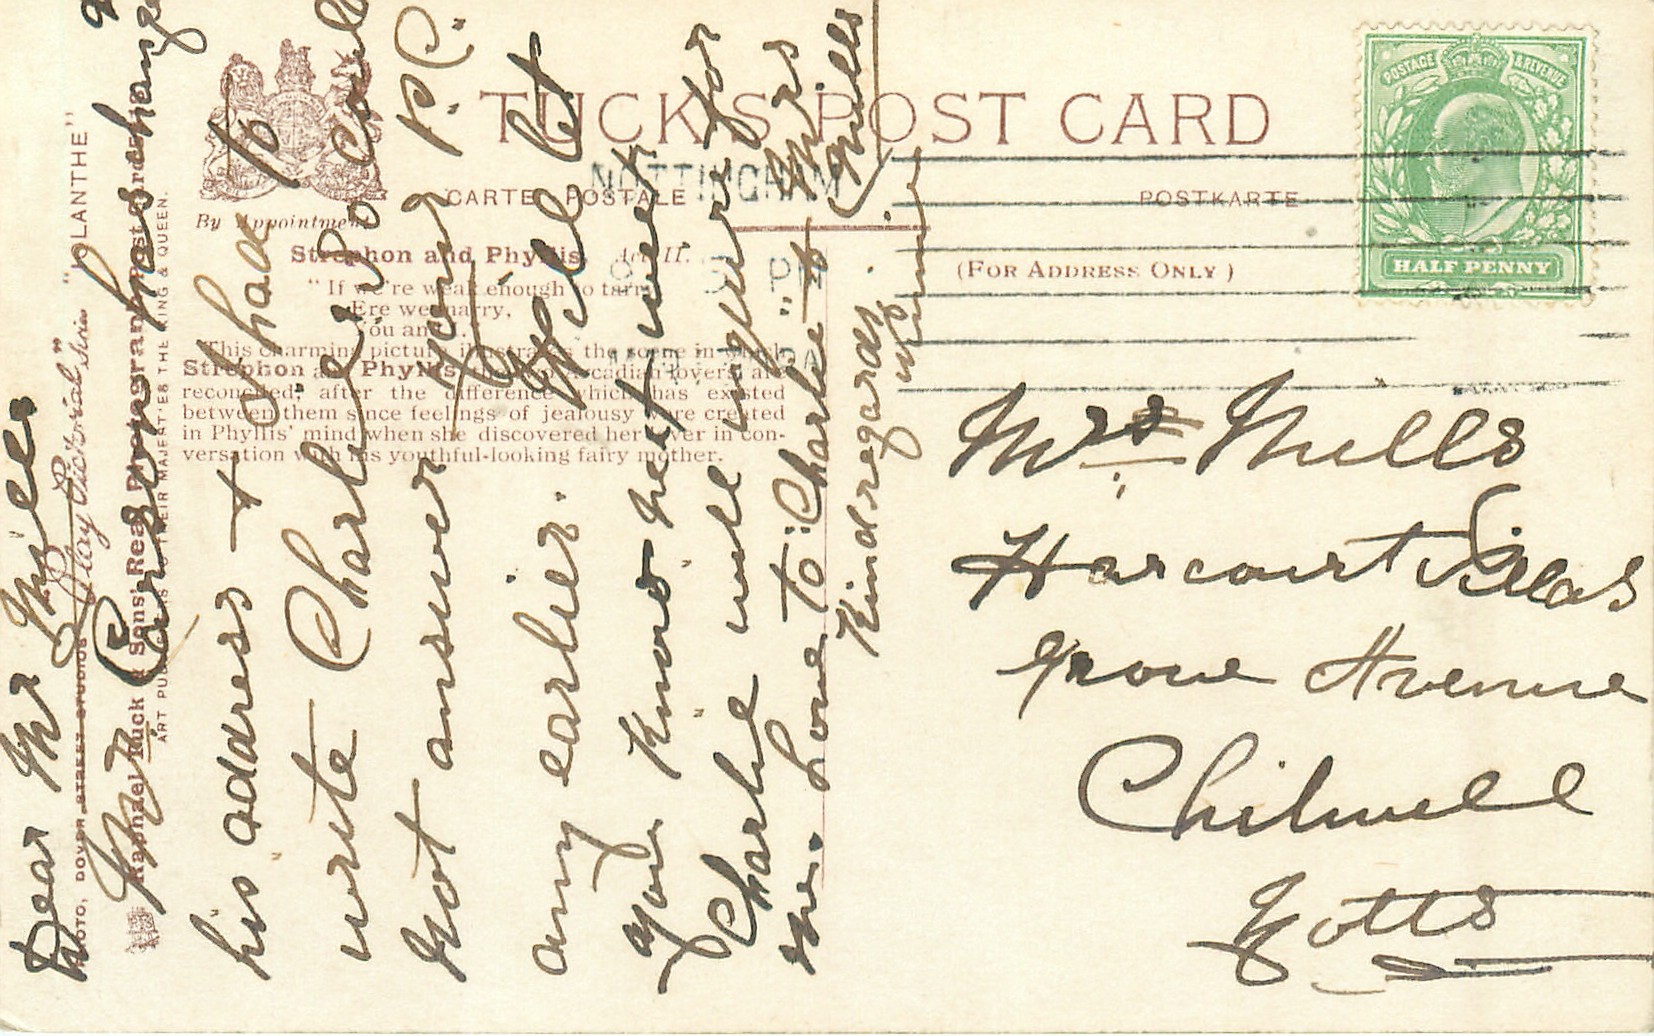 TUCK'S POST CARD
CARTE POSTALE
POSTKARTE
By Appointment
(FOR ADDRESS ONLY)
NOTTINGHAM
POSTAGE & REVENUE
HALF PENNY
Strephon and Phyllis. Act II.
"If we're weak enough to tarry
Ere we marry,
You and I."
This charming picture illustrates the scene in which
Strephon and Phyllis, the two Arcadian lovers, are
reconciled, after the difference which has existed
between them since feelings of jealousy were created
in Phyllis' mind when she discovered her lover in con-
versation with his youthful-looking fairy mother.
PHOTO, DOVER STREET STUDIOS
Play Pictorial Series "IOLANTHE"
Raphael Tuck & Sons' Real Photograph Postcard
ART PUBLISHERS TO THEIR MAJESTIES THE KING & QUEEN.
Dear Mr Miles
Mr Carslow has changed
his address & I had to
write Charlie so could
not answer your P.C.
any earlier. Will let
you know next week
Charlie will inquire for
me. Love to "Charlie" to Mrs
Mills
Kind regards
Mrs Mills
Harcourt Villas
Grove Avenue
Chilwell
Notts